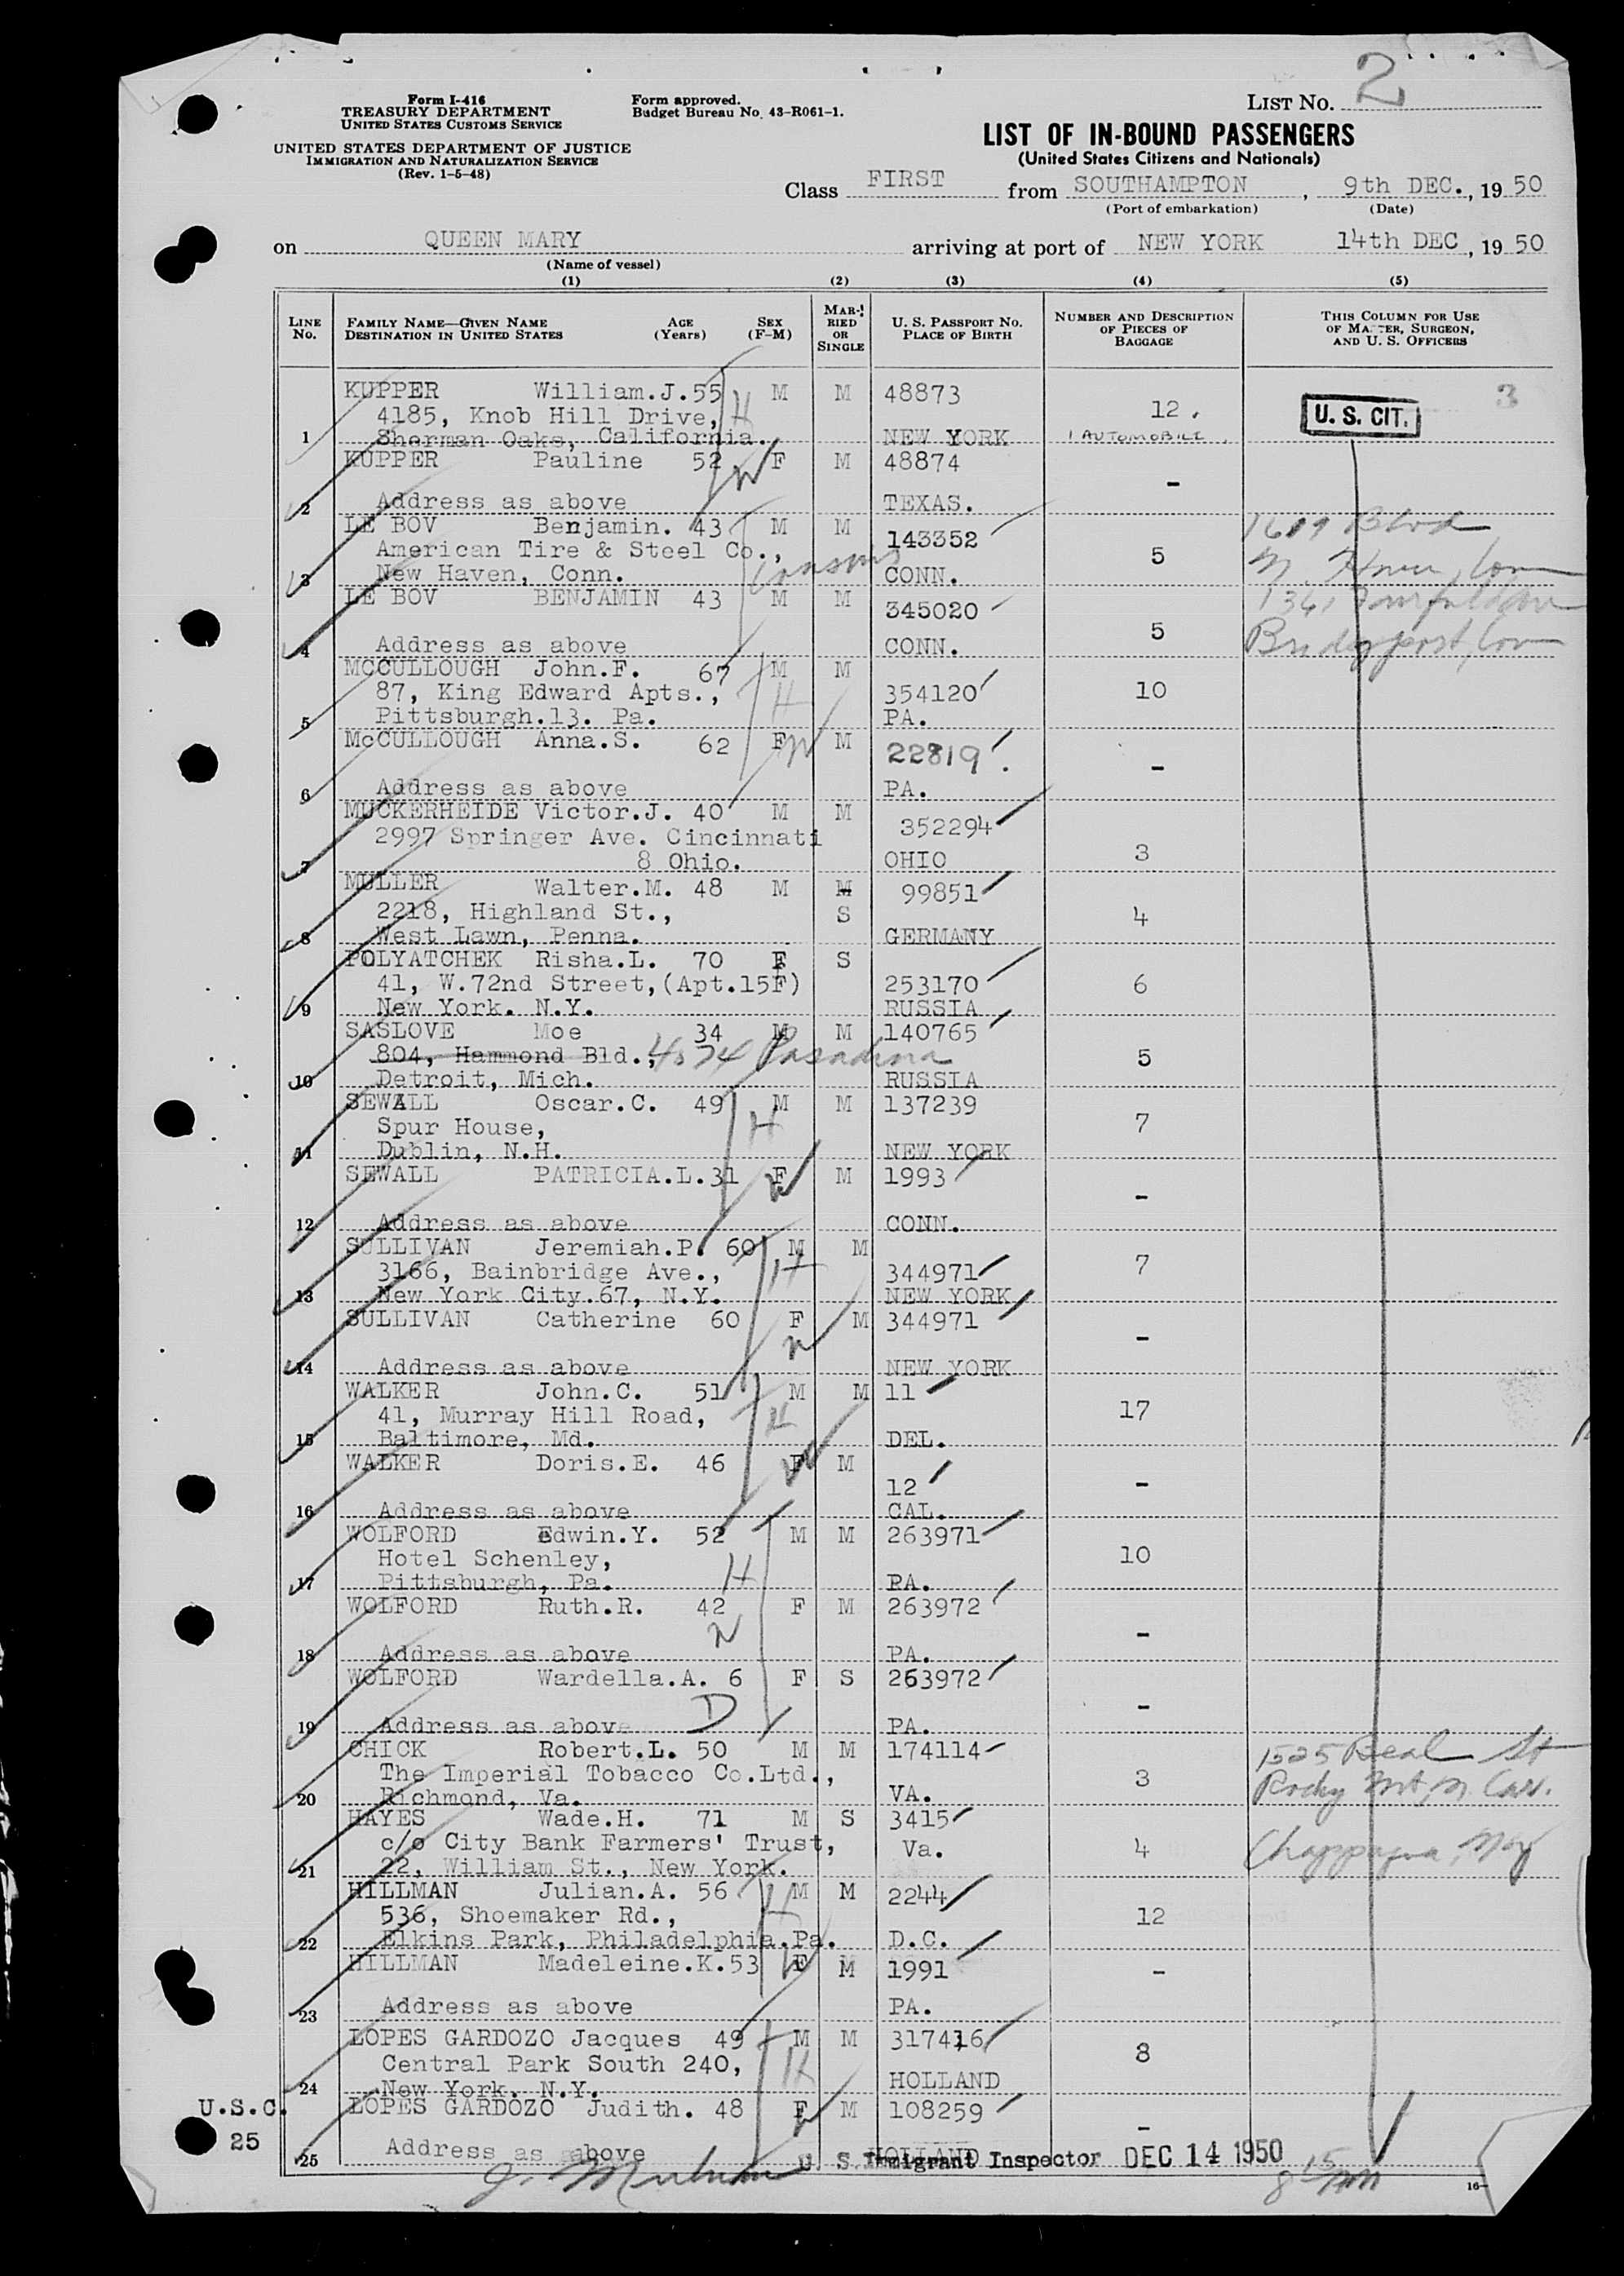 LIST No. 2
Form I-416
TREASURY DEPARTMENT
UNITED STATES CUSTOMS SERVICE
Form approved.
Budget Bureau No. 43-R061-1.
UNITED STATES DEPARTMENT OF JUSTICE
IMMIGRATION AND NATURALIZATION SERVICE
(Rev. 1-5-48)
LIST OF IN-BOUND PASSENGERS
(United States Citizens and Nationals)
Class FIRST from SOUTHAMPTON, 9th DEC., 19 50
(Port of embarkation) (Date)
on QUEEN MARY arriving at port of NEW YORK 14th DEC, 19 50
(Name of vessel)
(1) (2) (3) (4) (5)
LINE No. FAMILY NAME—GIVEN NAME DESTINATION IN UNITED STATES AGE (Years) SEX (F-M) MARRIED OR SINGLE U. S. PASSPORT No. PLACE OF BIRTH NUMBER AND DESCRIPTION OF PIECES OF BAGGAGE THIS COLUMN FOR USE OF MASTER, SURGEON, AND U. S. OFFICERS
KUPPER William.J. 55 M M 48873 3
4185, Knob Hill Drive, H 12. U. S. CIT.
1 Sherman Oaks, California. NEW YORK 1 AUTOMOBILE
KUPPER Pauline 52 W F M 48874
-
2 Address as above TEXAS.
LE BOV Benjamin. 43 M M 143352 1619 Blvd
American Tire & Steel Co., 5
3 New Haven, Conn. CONN.
LE BOV BENJAMIN 43 M M 345020
5
4 Address as above CONN. Bridgeport, Conn
MCCULLOUGH John.F. 67 M M
87, King Edward Apts., H 354120 10
5 Pittsburgh.13. Pa. PA.
McCULLOUGH Anna.S. 62 F W M 22819.
-
6 Address as above PA.
MUCKERHEIDE Victor.J. 40 M M 352294
2997 Springer Ave. Cincinnati
7 8 Ohio. OHIO 3
MULLER Walter.M. 48 M M 99851
2218, Highland St., S 4
8 West Lawn, Penna. GERMANY
POLYATCHEK Risha.L. 70 F S
41, W.72nd Street,(Apt.15F) 253170 6
9 New York. N.Y. RUSSIA
SASLOVE Moe 34 M M 140765
804, Hammond Bld., 4074 Pasadena 5
10 Detroit, Mich. RUSSIA
SEWALL Oscar.C. 49 M M 137239
Spur House, H 7
11 Dublin, N.H. NEW YORK
SEWALL PATRICIA.L. 31 F W M 1993
-
12 Address as above CONN.
SULLIVAN Jeremiah.P. 60 M M
3166, Bainbridge Ave., H 344971 7
13 New York City.67, N.Y. NEW YORK
SULLIVAN Catherine 60 F M 344971
W -
14 Address as above NEW YORK
WALKER John.C. 51 M M 11
41, Murray Hill Road, H 17
15 Baltimore, Md. DEL.
WALKER Doris.E. 46 F W M
12 -
16 Address as above CAL.
WOLFORD Edwin.Y. 52 M M 263971
Hotel Schenley, H 10
17 Pittsburgh, Pa. PA.
WOLFORD Ruth.R. 42 F M 263972
W -
18 Address as above PA.
WOLFORD Wardella.A. 6 F S 263972
D -
19 Address as above PA.
CHICK Robert.L. 50 M M 174114 1525 Beal St
The Imperial Tobacco Co.Ltd., 3 Rocky Mt, N. Car.
20 Richmond, Va. VA.
HAYES Wade.H. 71 M S 3415
c/o City Bank Farmers' Trust, Va. 4 Chappaqua, NY
21 22, William St., New York.
HILLMAN Julian.A. 56 M M 2244
536, Shoemaker Rd., H 12
22 Elkins Park, Philadelphia.Pa. D.C.
HILLMAN Madeleine.K. 53 W F M 1991 -
23 Address as above PA.
LOPES GARDOZO Jacques 49 M M 317416
Central Park South 240, H 8
24 New York. N.Y. HOLLAND
U.S.C. LOPES GARDOZO Judith. 48 F W M 108259
25 -
25 Address as above HOLLAND
U. S. Immigrant Inspector DEC 14 1950
16—